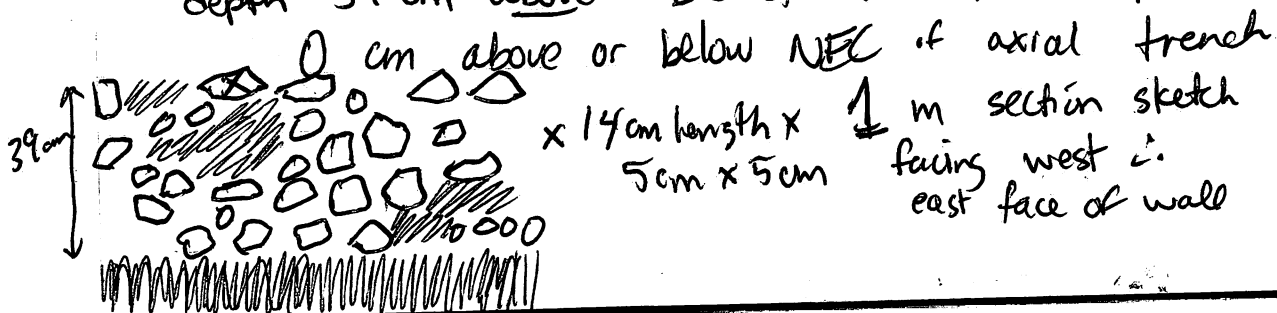 depth 39 cm above
0 cm above or below NEC of axial trench
39cm
x 14cm length x
5cm x 5cm
1 m section sketch
facing west ∴
east face of wall